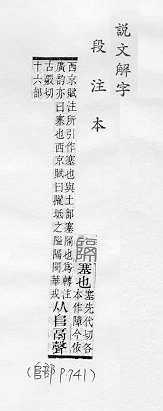 說文解字
段注本
隔
塞也塞先代切各
本作障今依
西京賦注所引作塞也與土部塞隔也爲轉注
廣韵亦曰塞也西京賦曰隴坻之隘隔閡華戎从𨸏鬲聲
古覈切
十六部
(𨸏部 P741)